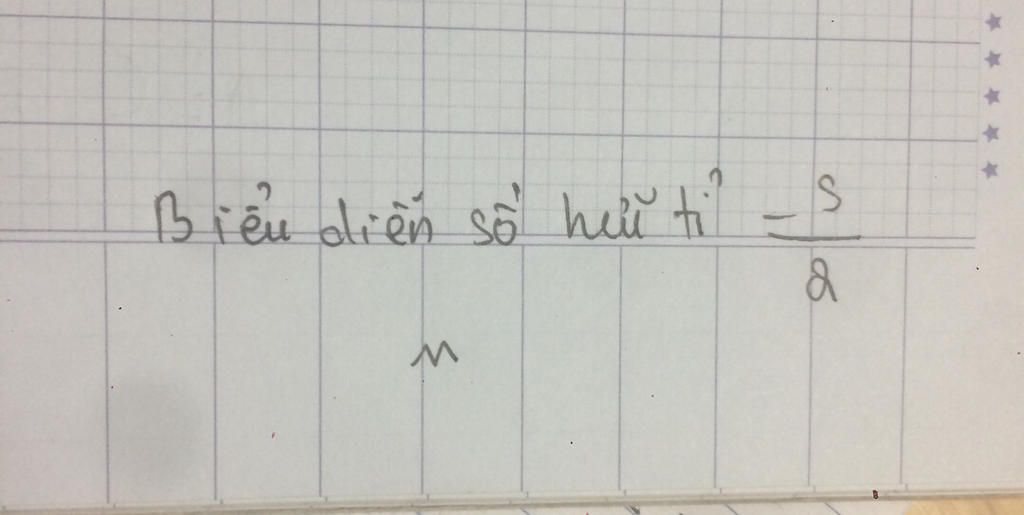 Biểu diễn số hữu tỉ -5/2